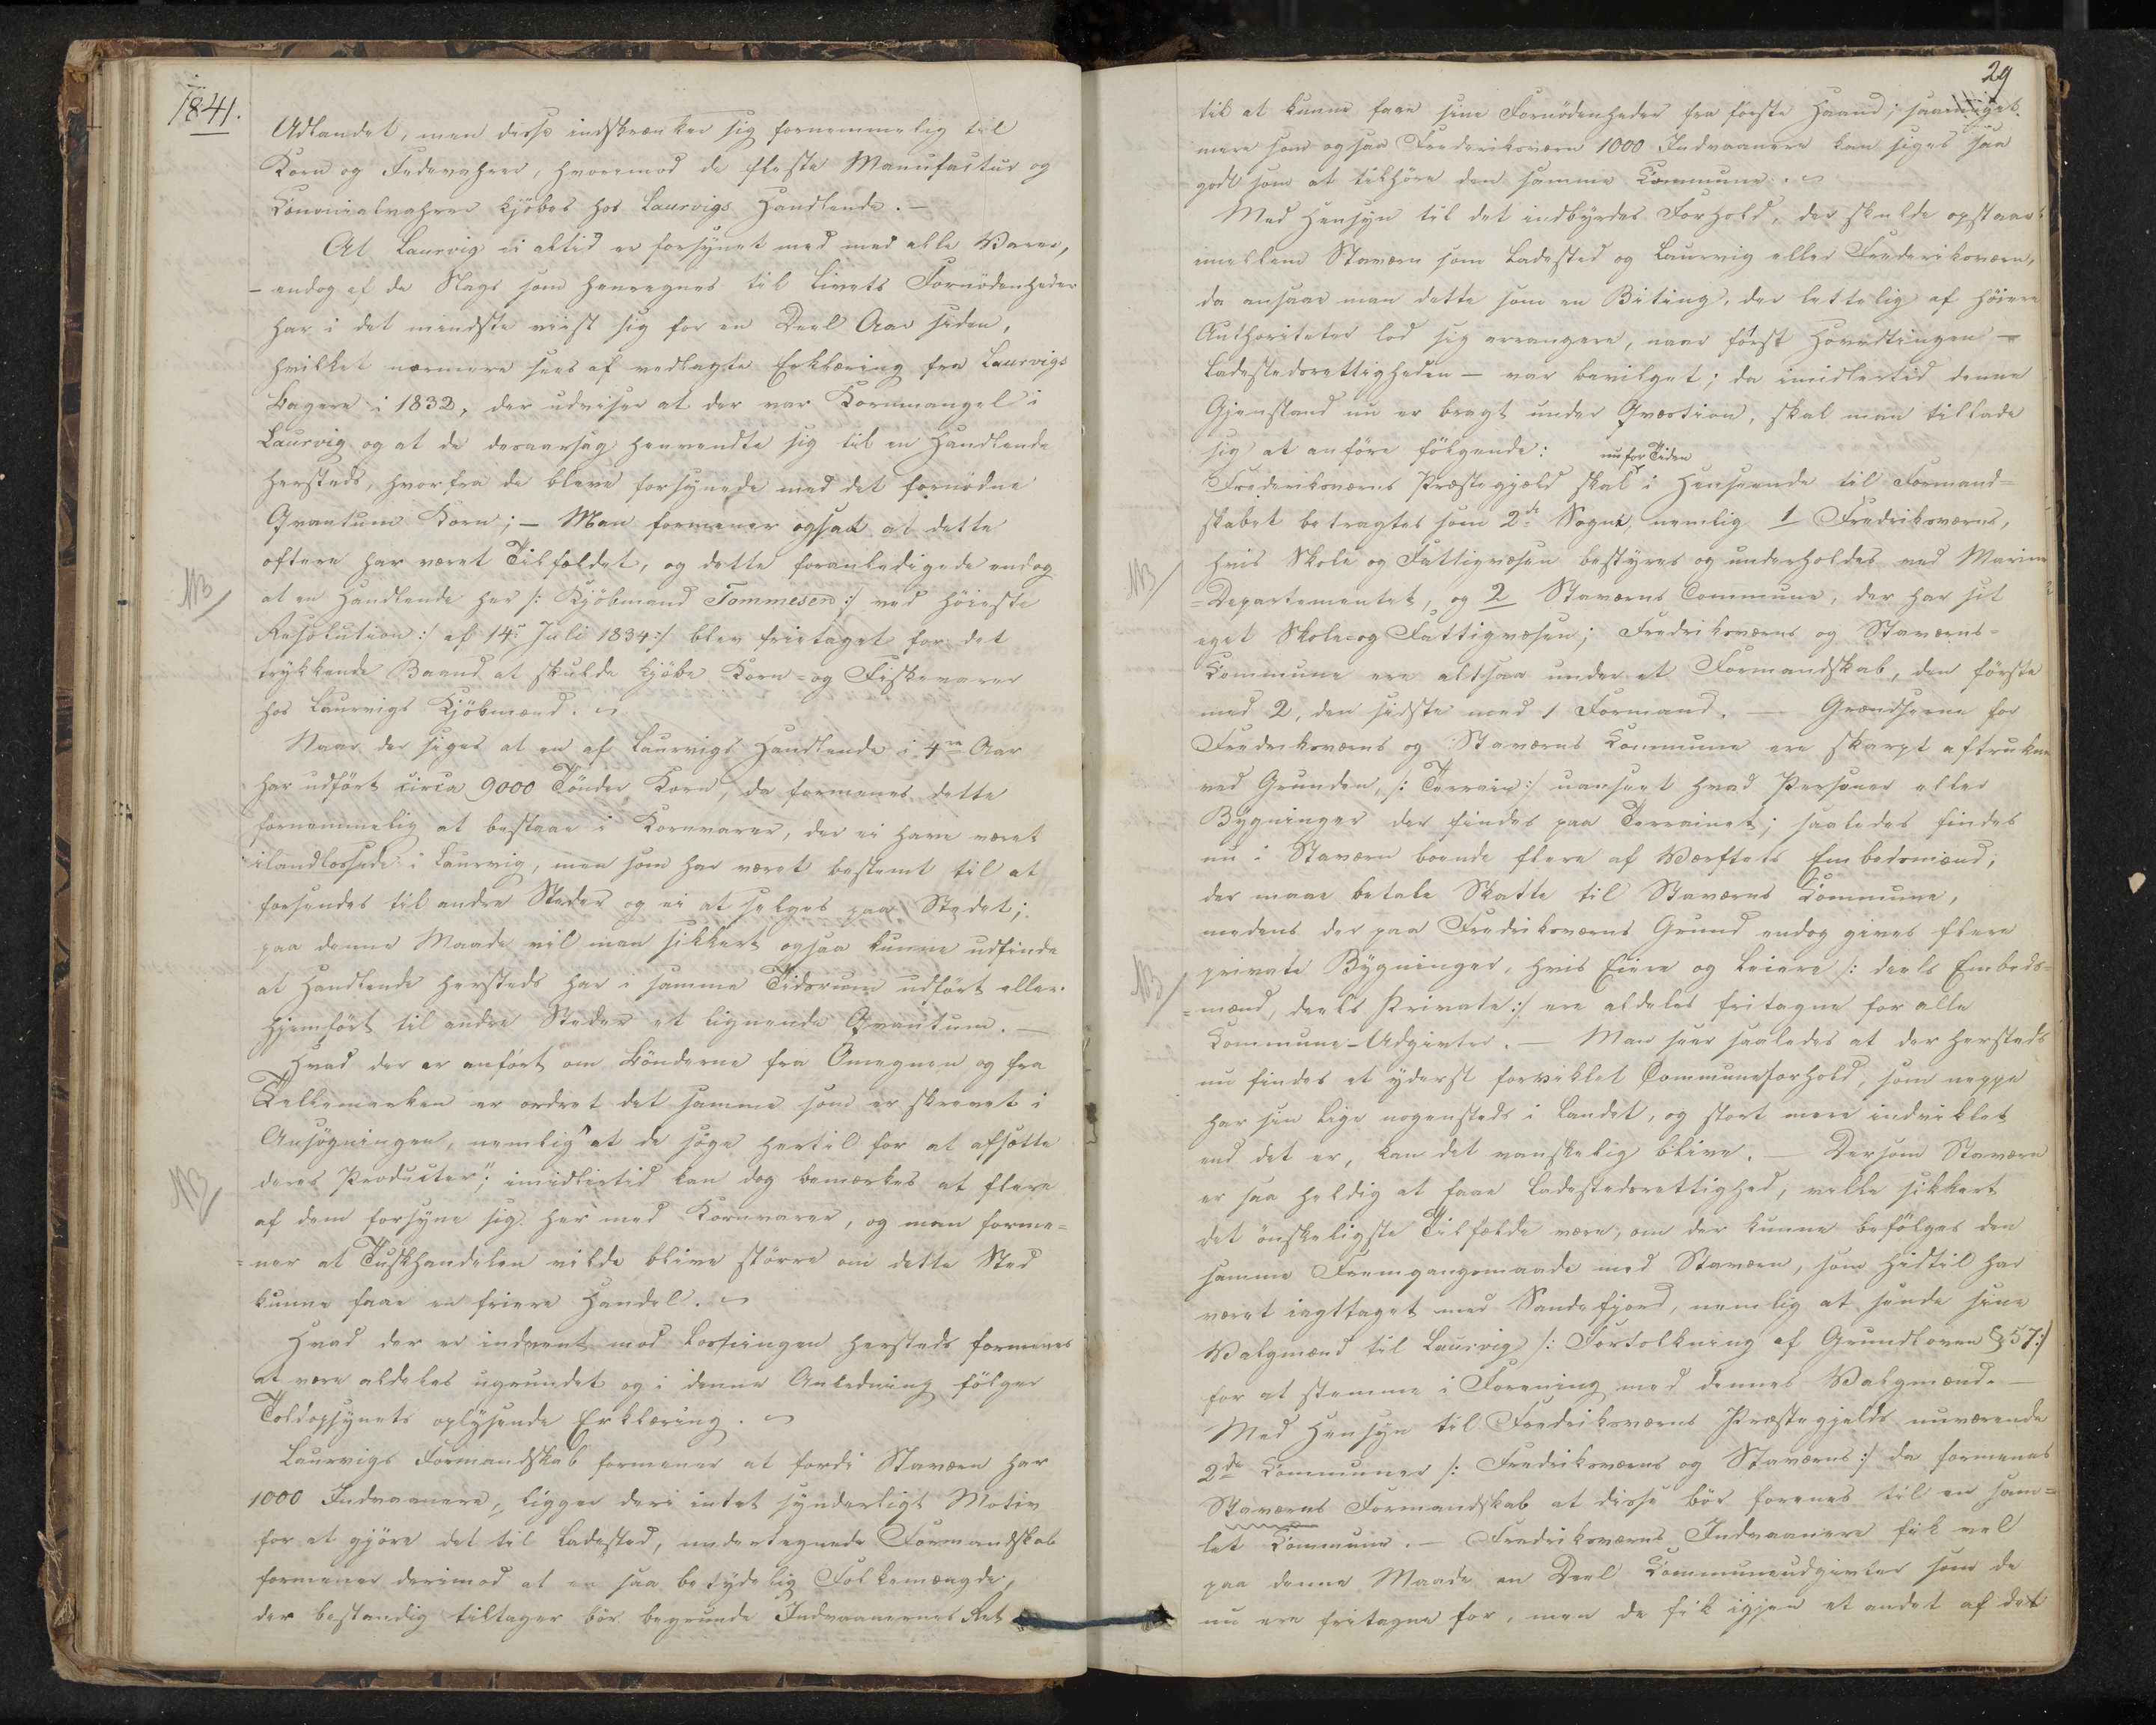 1841.
Udlandet, men disse indskrænker sig fornemmelig til
Korn og Fedevahrer, hvorimod de fleste Manufactur og
Colonialvahrer kjöbes hos Laurvigs Handlende. —
At Laurvig ei altid er forsynet med med alle Varer,
- endog af de Slags som henregnes til Livets Fornödenheder
har i det mindste viist sig for en Deel Aar siden,
hvilket nærmere sees af vedlagte Erklæring fra Laurvigs
Bagere i 1832, der udviser at der var Kornmangel i
Laurvig og at de desaarsag henvendte sig til en Handlende
hersteds, hvorfra de bleve forsynede med det fornödne
Qvantum Korn; — Man formener ogsaa at dette
oftere har været Tilfældet, og dette foranledigede endog
NB
at en Handlende her /: Kjöbmand Tommesen :/ ved höieste
Resolution :/ af 14de Juli 1834 :/ blev frietaget for det
trykkende Baand at skulde kjöbe Korn- og Fiskevarer
hos Laurvigs Kjöbmænd.
Naar der siges at en af Laurvigs Handlende i 4re Aar
har udfört circa 9000 Tönder Korn, da formenes dette
fornemmelig at bestaae i Kornvarer, der ei have været
ilandlossede i Laurvig, men som har været bestemt til at
forsendes til andre Steder og ei at selges paa Stedet;
paa denne Maade vil man sikkert ogsaa kunne udfinde
at Handlende hersteds har i samme Tidsrum udfört eller
hjemfört til andre Steder et lignende Qvantum. —
Hvad der er anfört om Bönderne fra Omegnen og fra
Tellemarken er ordret det samme som er skrevet i
Ansögningen, nemlig "at de söge hertil for at afsætte
NB
deres Producter"; imidlertid kan dog bemærkes at flere
af dem forsyne sig her med Kornvarer, og man forme=
=ner at Tuskhandelen vilde blive större om dette Sted
kunne faae en friere Handel.
Hvad der er indvent mod Losningen hersteds formenes
at være aldeles ugrundet og i denne Anledning fölger
Toldopsynets oplysende Erklæring.
Laurvigs Formandskab formener at fordi Staværn har
1000 Indvaanere, ligger deri intet synderligt Motiv
for at gjöre det til Ladested, undertegnede Formandskab
formener derimod at en saa betydelig Folkemængde,
der bestandig tiltager bör begrunde Indvaanernes Ret
29
til at kunne faae sine Fornödenheder fra förste Haand; saameget
mere som ogsaa Frederiksværn 1000 Indvaanere kan siges saa
godt som at tilhöre den samme Commune.
Med Hensyn til det indbyrdes Forhold, der skulde opstaae
imellem Staværn som Ladested og Laurvig eller Frederiksværn,
da ansaae man dette som en Biting, der lettelig af höiere
Authoriteter lod sig arrangere, naar först Hovedtingen —
Ladestedsrettigheden — var bevilget; da imidlertid denne
Gjenstand nu er bragt under Qvæstion, skal man tillade
sig at anföre fölgende:
nu for Tiden
Frederiksværns Præstegjæld skal i Henseende til Formand=
skabet betragtes som 2de Sogne, nemlig 1 Fredriksværns,
NB
hvis Skole og Fattigvæsen bestyres og underholdes ved Marine
=Departementet, og 2 Staværns Commune, der har sit
eget Skole- og Fattigvæsen; Fredriksværns og Staværns=
Commune ere altsaa under et Formandskab, den förste
med 2, den sidste med 1 Formand. — Grændserne for
Fredriksværns og Staværns Commune ere skarpt aftrukne
ved Grunden, /: Terrain :/ uanseet hvad Personer eller
Bygninger der findes paa Terrainet; saaledes findes
nu i Staværn boende flere af Værftets Embedsmænd,
der maae betale Skatte til Staværns Commune,
medens der paa Fredriksværns Grund endog gives flere
NB
private Bygninger, hvis Eiere og Leiere /: deels Embeds=
=mænd, deels Private :/ ere aldeles fritagne for alle
Commune-Udgivter. — Man seer saaledes at der hersteds
nu findes et yderst forviklet Communeforhold, som neppe
har sin Lige nogensteds i Landet, og stort mere indviklet
end det er, kan det vanskelig blive. — Dersom Staværn
er saa heldig at faae Ladestedsrettighed, ville sikkert
det önskeligste Tilfælde være, om der kunne befölges den
samme Fremgangsmaade med Staværn, som hidtil har
været iagttaget med Sandefjord, nemlig at sende sine
Valgmænd til Laurvig /: Fortolkning af Grundloven § 57 :/
for at stemme i Forening med dennes Valgmænd. —
Med Hensyn til Fredriksværns Præstegjelds nuværende
2de Communer /: Fredriksværns og Staværns :/ da formenes
Staværns Formandskab at disse bör forenes til en sam=
let Commune. — Fredriksværns Indvaanere fik vel
paa denne Maade en Deel Communeudgivter som de
nu ere fritagne for, men de fik igjen et andet af det